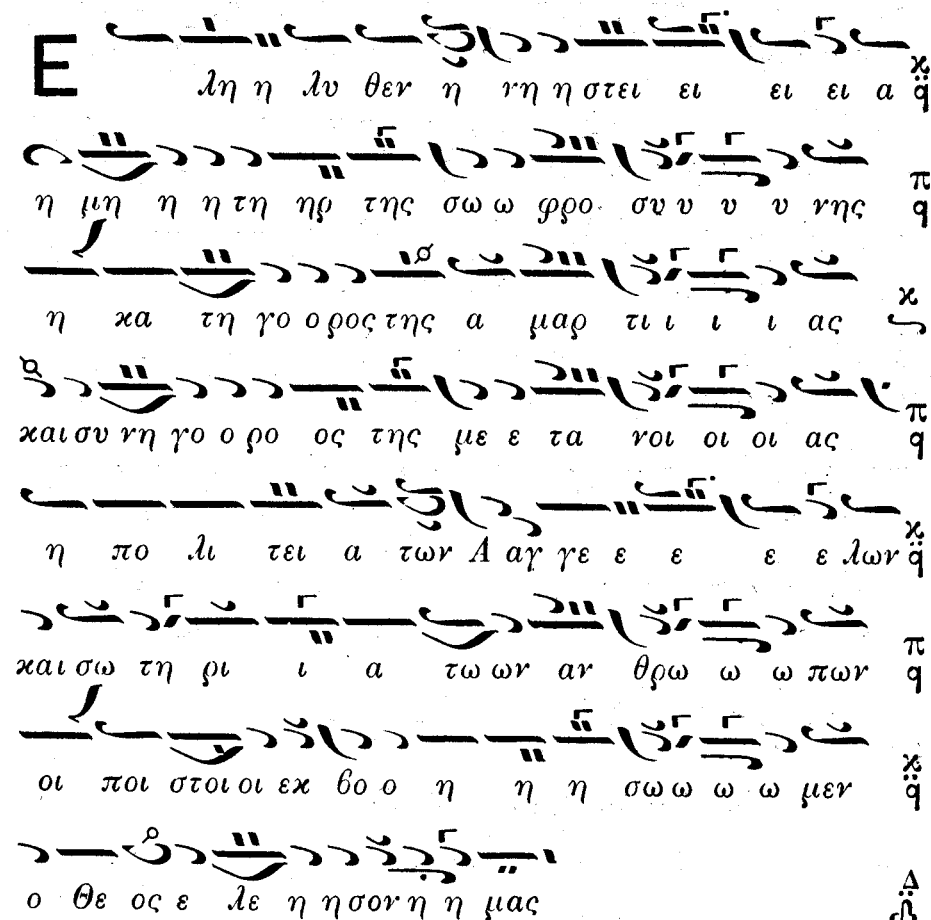 Ε λη η λυ θεν η νη η στει ει ει ει α
η μη η η τη ηρ της σω ω φρο συ υ υ υ νης
η κα τη γο ο ρος της α μαρ τι ι ι ι ας
και συ νη γο ο ρο ος της με ε τα νοι οι οι ας
η πο λι τει α των Α αγ γε ε ε ε ε λων
και σω τη ρι ι α τω ων αν θρω ω ω πων
οι ποι στοι οι εκ βο ο η η η σω ω ω ω μεν
ο Θε ος ε λε η η σον η η μας